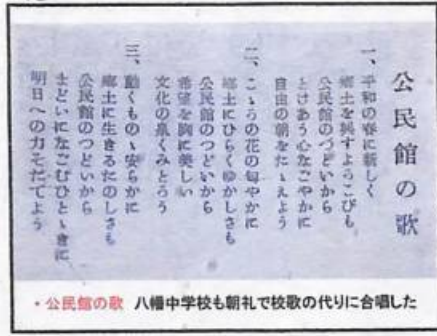 公民館の歌
一、平和の春に新しく
郷土を興すよろこびも
公民館のつどいから
とけあう心なごやかに
自由の朝をたゝえよう
二、こゝろの花の匂やかに
郷土にひらくゆかしさも
公民館のつどいから
希望を胸に美しい
文化の泉くみとろう
三、動くものゝ安らかに
郷土に生きるたのしさも
公民館のつどいから
まどいになごむひとゝきに
明日への力そだてよう
・公民館の歌 八幡中学校も朝礼で校歌の代りに合唱した